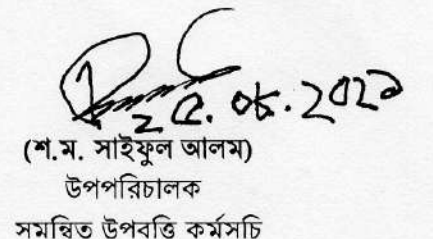 ২৫.০৮.২০২১
(শ.ম. সাইফুল আলম)
উপপরিচালক
সমন্বিত উপবৃত্তি কর্মসূচি